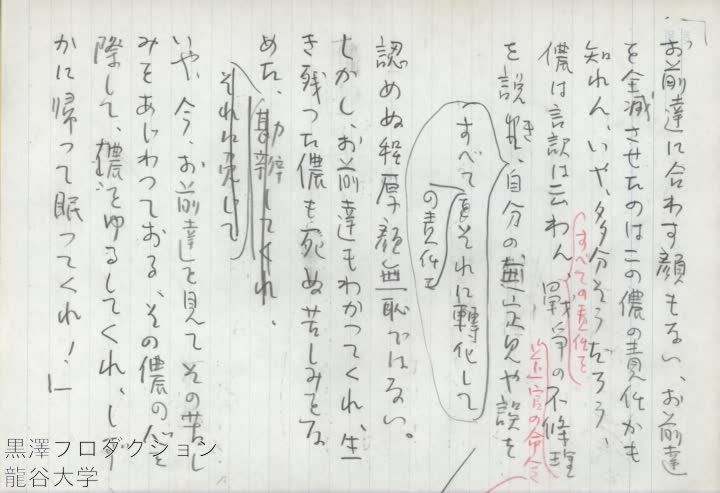 お前達に合わす顔もない、お前達
を全滅させたのはこの儂の責任かも
知れん、いや、多分そうだろう、
すべての責任を
儂は言訳は云わん、戦争の不條理
を説き、自分の
見や誤を
上官の命令
すべてをそれに轉化して
の責任を
認めぬ程厚顔無恥ではない。
しかし、お前達もわかつてくれ、生
き残つた儂も死ぬ苦しみをな
めた、勘辨してくれ、
それに免じて
いや、今、お前達を見てその苦し
みをあじわつておる、その儂の心を
際して、儂をゆるしてくれ、しず
かに帰って眠ってくれ！」
黒澤プロダクション
龍谷大学